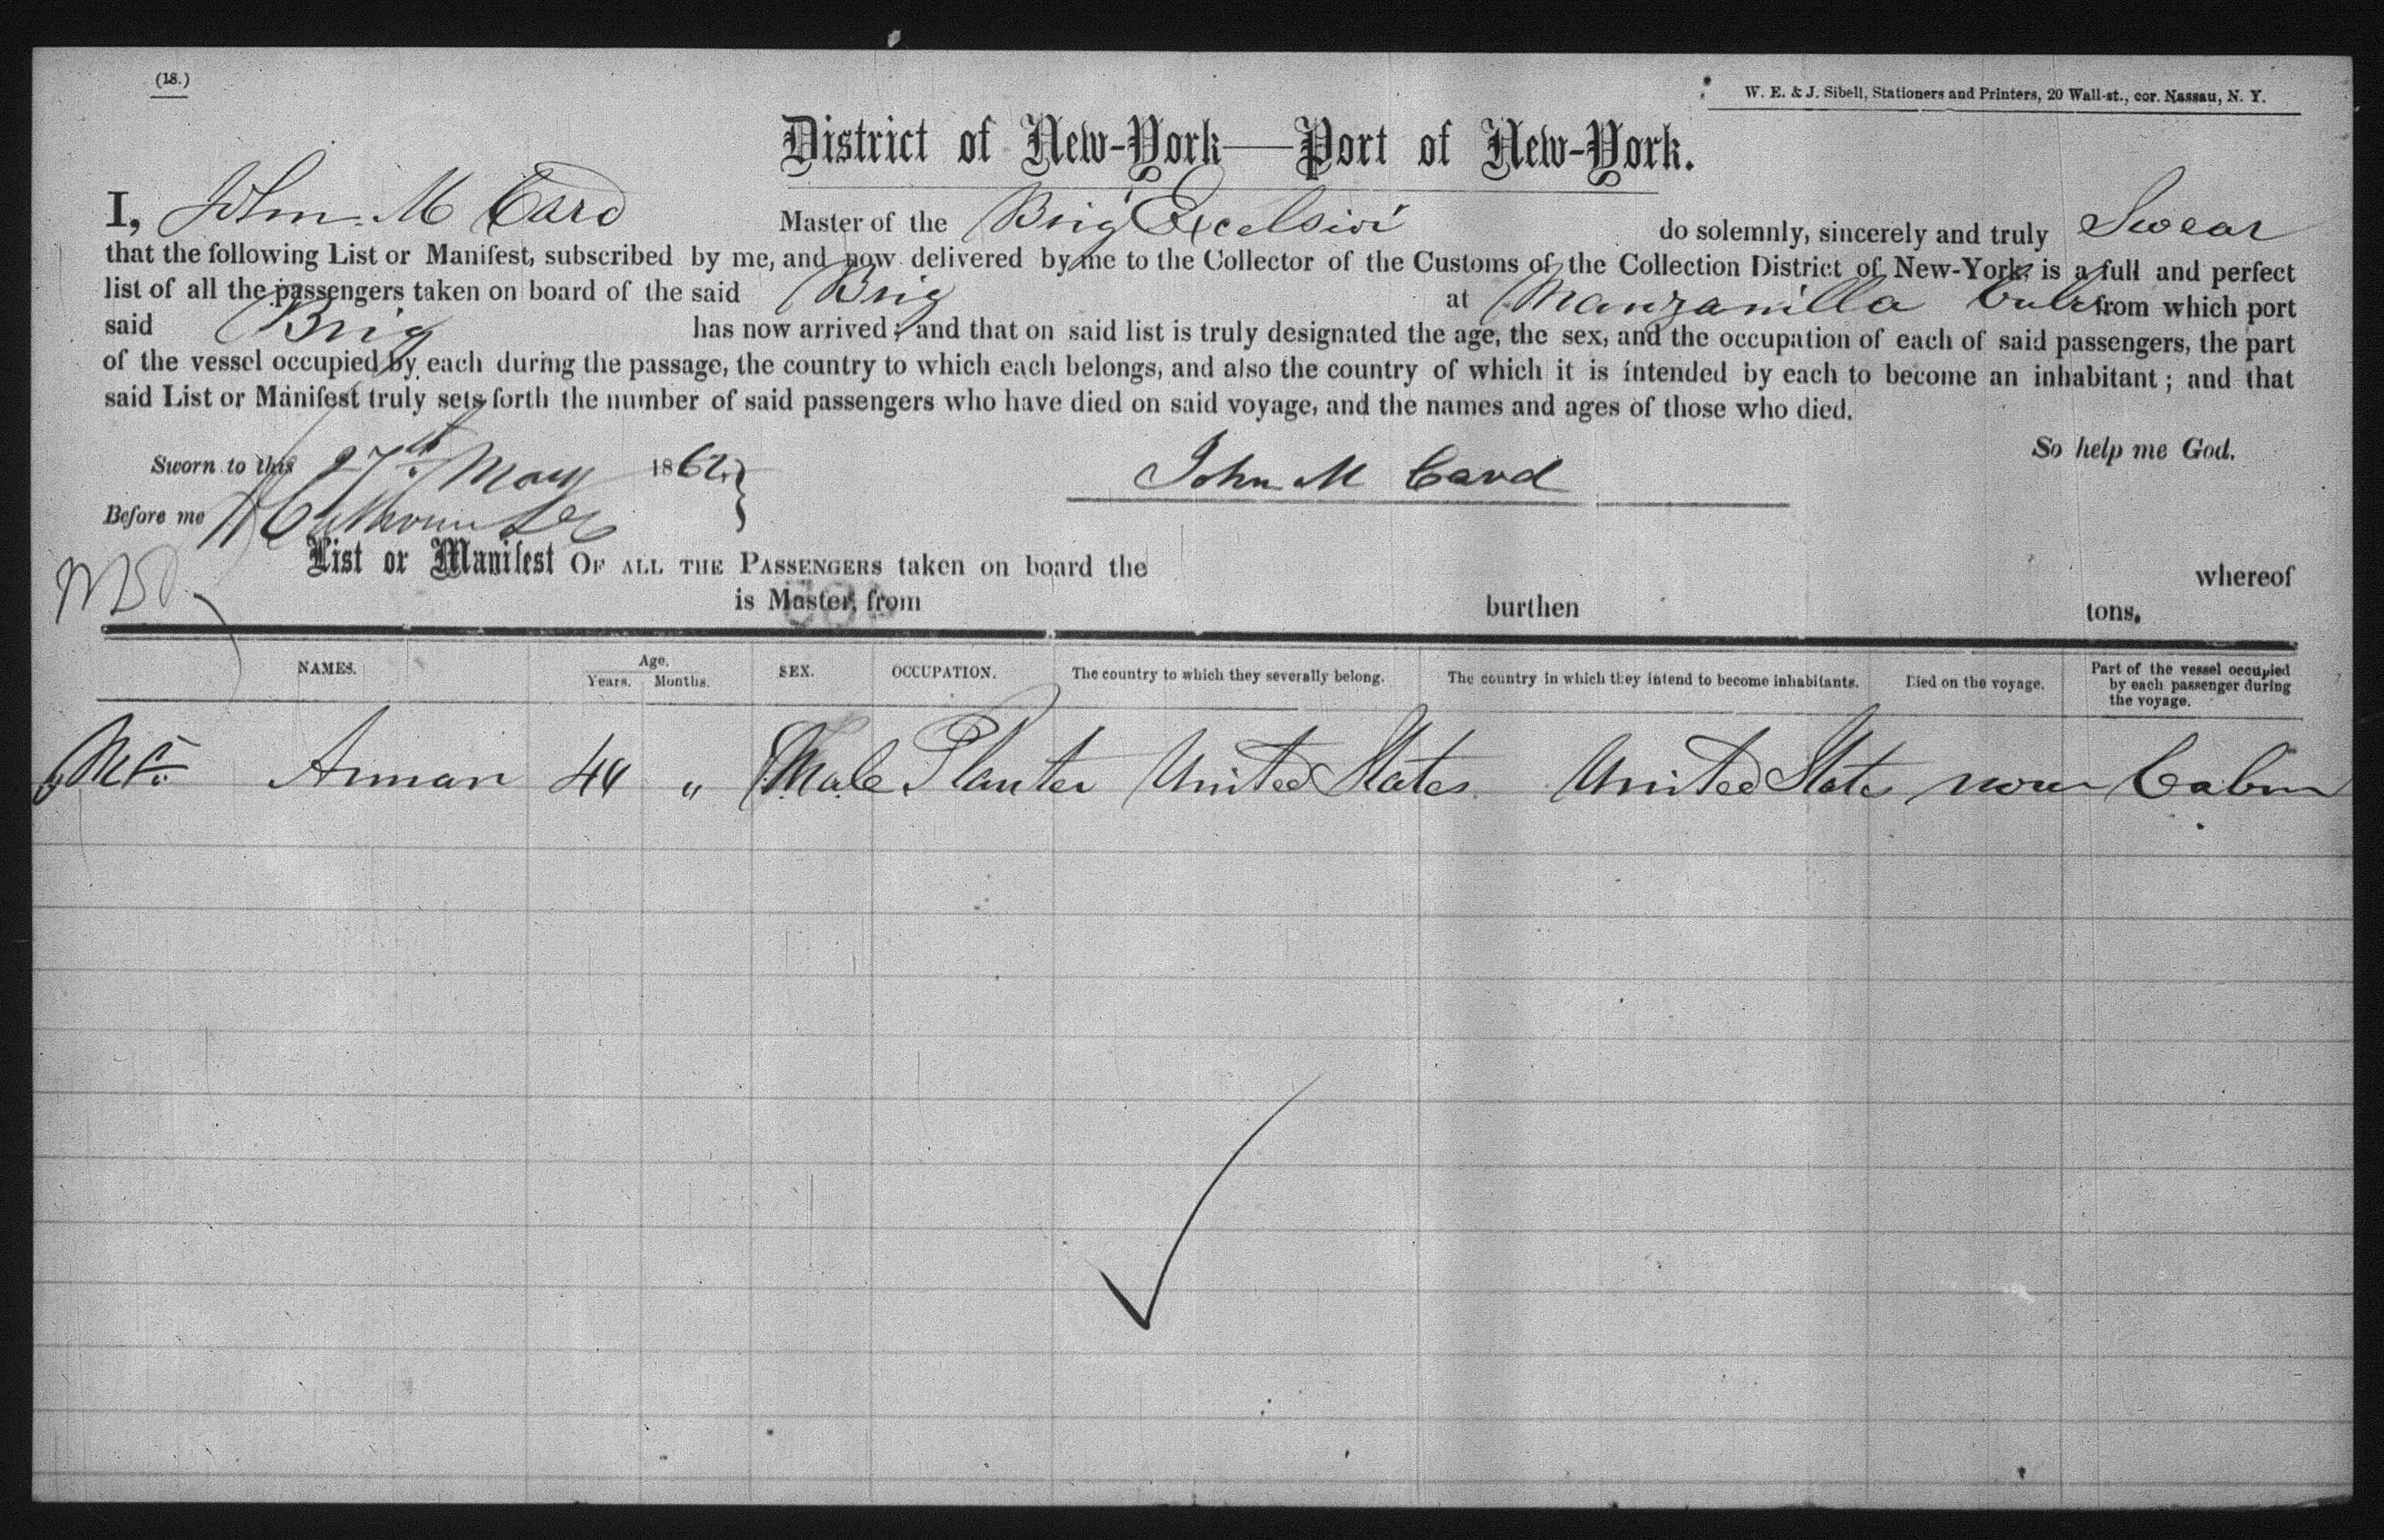 (18.)
W. E. & J. Sibell, Stationers and Printers, 20 Wall-st., cor. Nassau, N. Y.
District of New-York—Port of New-York.
I, John M Card Master of the Brig Excelsior do solemnly, sincerely and truly Swear
that the following List or Manifest, subscribed by me, and now delivered by me to the Collector of the Customs of the Collection District of New-York, is a full and perfect
list of all the passengers taken on board of the said Brig at Manzanilla Cuba from which port
said Brig has now arrived; and that on said list is truly designated the age, the sex, and the occupation of each of said passengers, the part
of the vessel occupied by each during the passage, the country to which each belongs, and also the country of which it is intended by each to become an inhabitant; and that
said List or Manifest truly sets forth the number of said passengers who have died on said voyage, and the names and ages of those who died.
So help me God.
Sworn to this 27th May 1862
John M Card
Before me
List or Manifest OF ALL THE PASSENGERS taken on board the whereof
is Master, from burthen tons.
NAMES. Age. Years. Months. SEX. OCCUPATION. The country to which they severally belong. The country in which they intend to become inhabitants. Died on the voyage. Part of the vessel occupied by each passenger during the voyage.
Mr. Annan 44 " Male Planter United States United States none Cabin